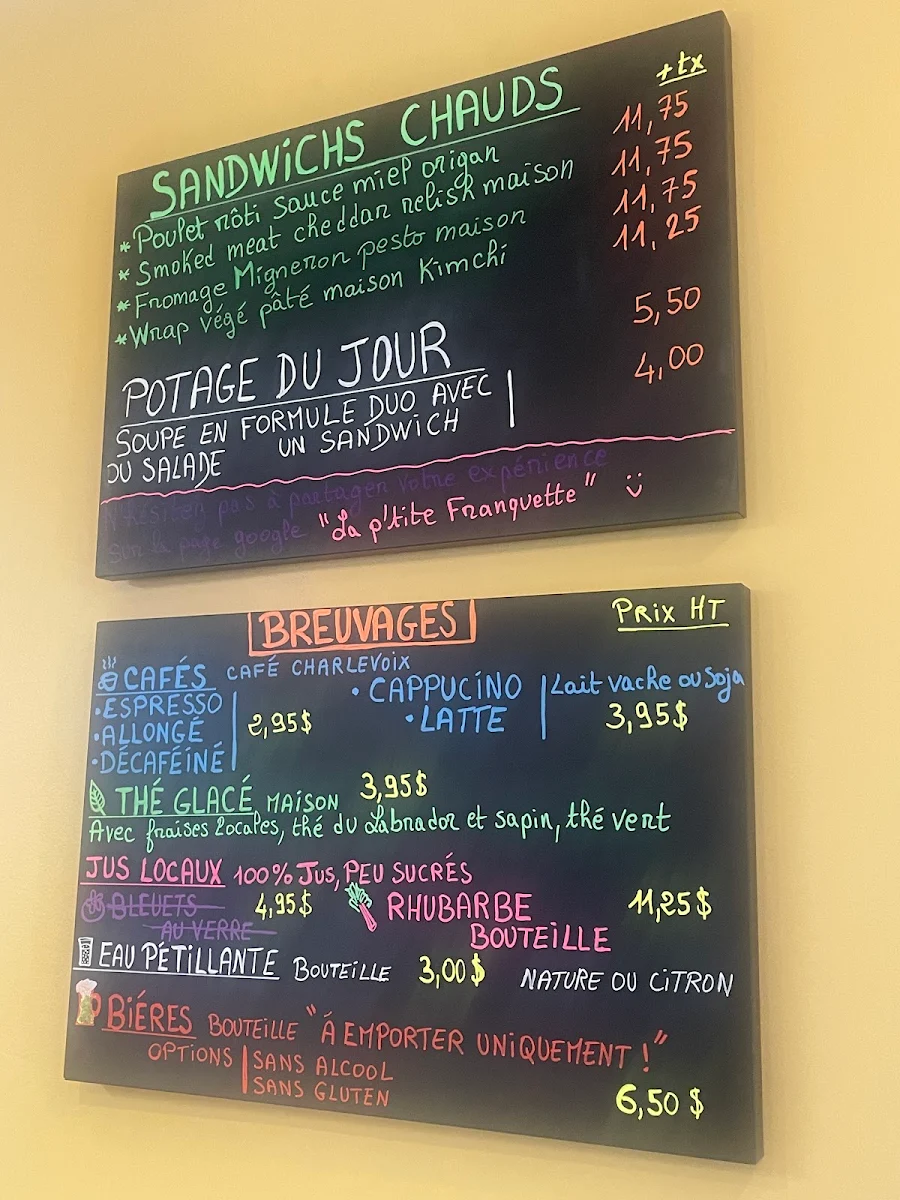 +tx
SANDWiCHS CHAUDS
* Poulet rôti sauce miel origan 11,75
* Smoked meat cheddar relish maison 11,75
* Fromage Migneron pesto maison 11,75
* Wrap végé pâté maison Kimchi 11,25
POTAGE DU JOUR 5,50
SOUPE EN FORMULE DUO AVEC 4,00
OU SALADE UN SANDWICH
N'hésitez pas à partager votre expérience
sur la page google "La p'tite Franquette" ü
BREUVAGES PRix HT
CAFÉS CAFÉ CHARLEVOiX
• ESPRESSO
• ALLONGÉ 2,95$
• DÉCAFÉINÉ
• CAPPUCiNO Lait vache ou Soja
• LATTE 3,95$
THÉ GLACÉ MAiSON 3,95$
Avec fraises locales, thé du Labrador et sapin, thé vert
JUS LOCAUX 100% JUS, PEU SUCRÉS
BLEUETS 4,95$ RHUBARBE 11,25$
AU VERRE BOUTEiLLE
EAU PÉTiLLANTE BOUTEiLLE 3,00$ NATURE OU CiTRON
BiÉRES BOUTEiLLE "Á EMPORTER UNiQUEMENT !"
OPTiONS SANS ALCOOL
SANS GLUTEN 6,50 $